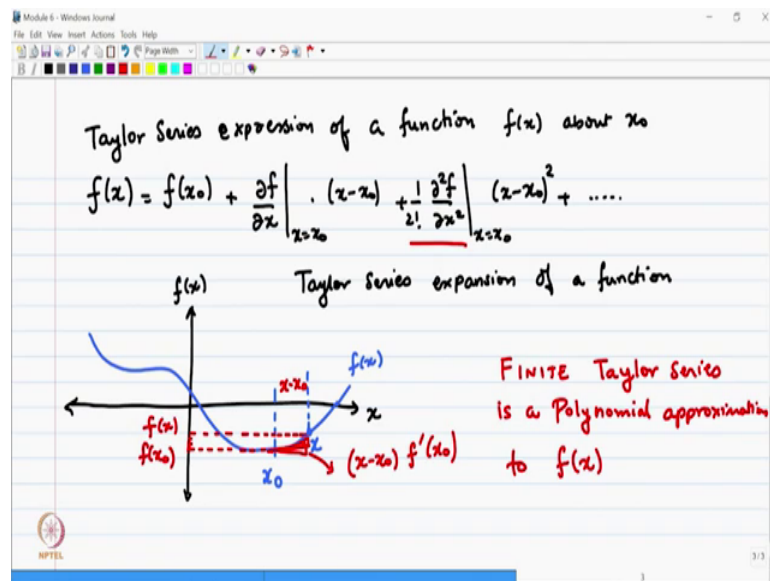 Module 6 - Windows Journal
File Edit View Insert Actions Tools Help
Page Width
B I
Taylor Series expression of a function f(x) about x₀
f(x) = f(x₀) + ∂f/∂x |ₓ₌ₓ₀ . (x-x₀) + 1/2! ∂²f/∂x² |ₓ₌ₓ₀ (x-x₀)² + .....
Taylor Series expansion of a function
f(x)
f(x)
x-x₀
x
f(x)
f(x₀)
x
x₀
(x-x₀) f'(x₀)
FINITE Taylor Series
is a Polynomial approximation
to f(x)
NPTEL
3/3